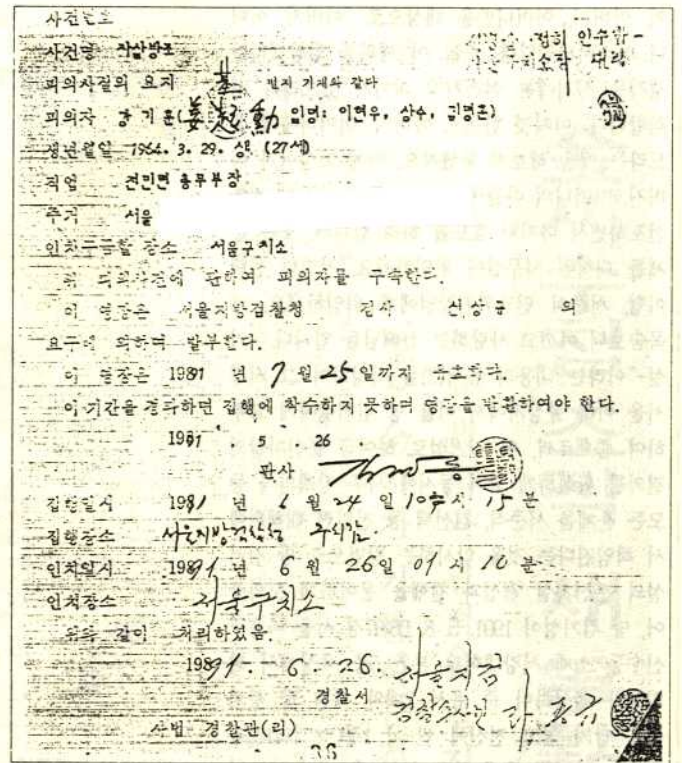 사건번호
사건명 자살방조
접히 인수함
구치소장 대리
피의사실의 요지 별지 기재와 같다
피의자 강기훈(姜基勳 일명, 이현우, 상수, 김명준)
생년월일 1964. 3. 29. 생 (27세)
직업 전민련 총무부장
주거 서울
인치구금할 장소 서울구치소
위 피의사건에 관하여 피의자를 구속한다.
이 영장은 서울지방검찰청 검사 신상규 의
요구에 의하여 발부한다.
이 영장은 1991 년 7 월 25 일까지 유효하다.
이 기간을 경과하면 집행에 착수하지 못하며 영장을 반환하여야 한다.
1991 5 26
판사
집행일시 1991 년 6 월 24 일 10 시 15 분
집행장소 서울지방검찰청 구치감
인치일시 1991 년 6 월 26일 01 시 10 분
인치장소 서울구치소
위와 같이 처리하였음.
1991. 6. 26. 서울지검
경찰서
사법 경찰관(리) 검찰수사관
38